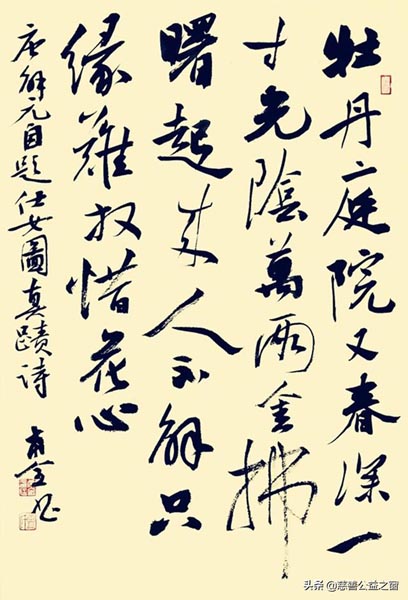 牡丹庭院又春深一
寸光陰萬兩金拂
曙起來人不解只
緣難放惜花心
唐解元自題仕女圖真蹟詩
头条 @慈善公益之窗